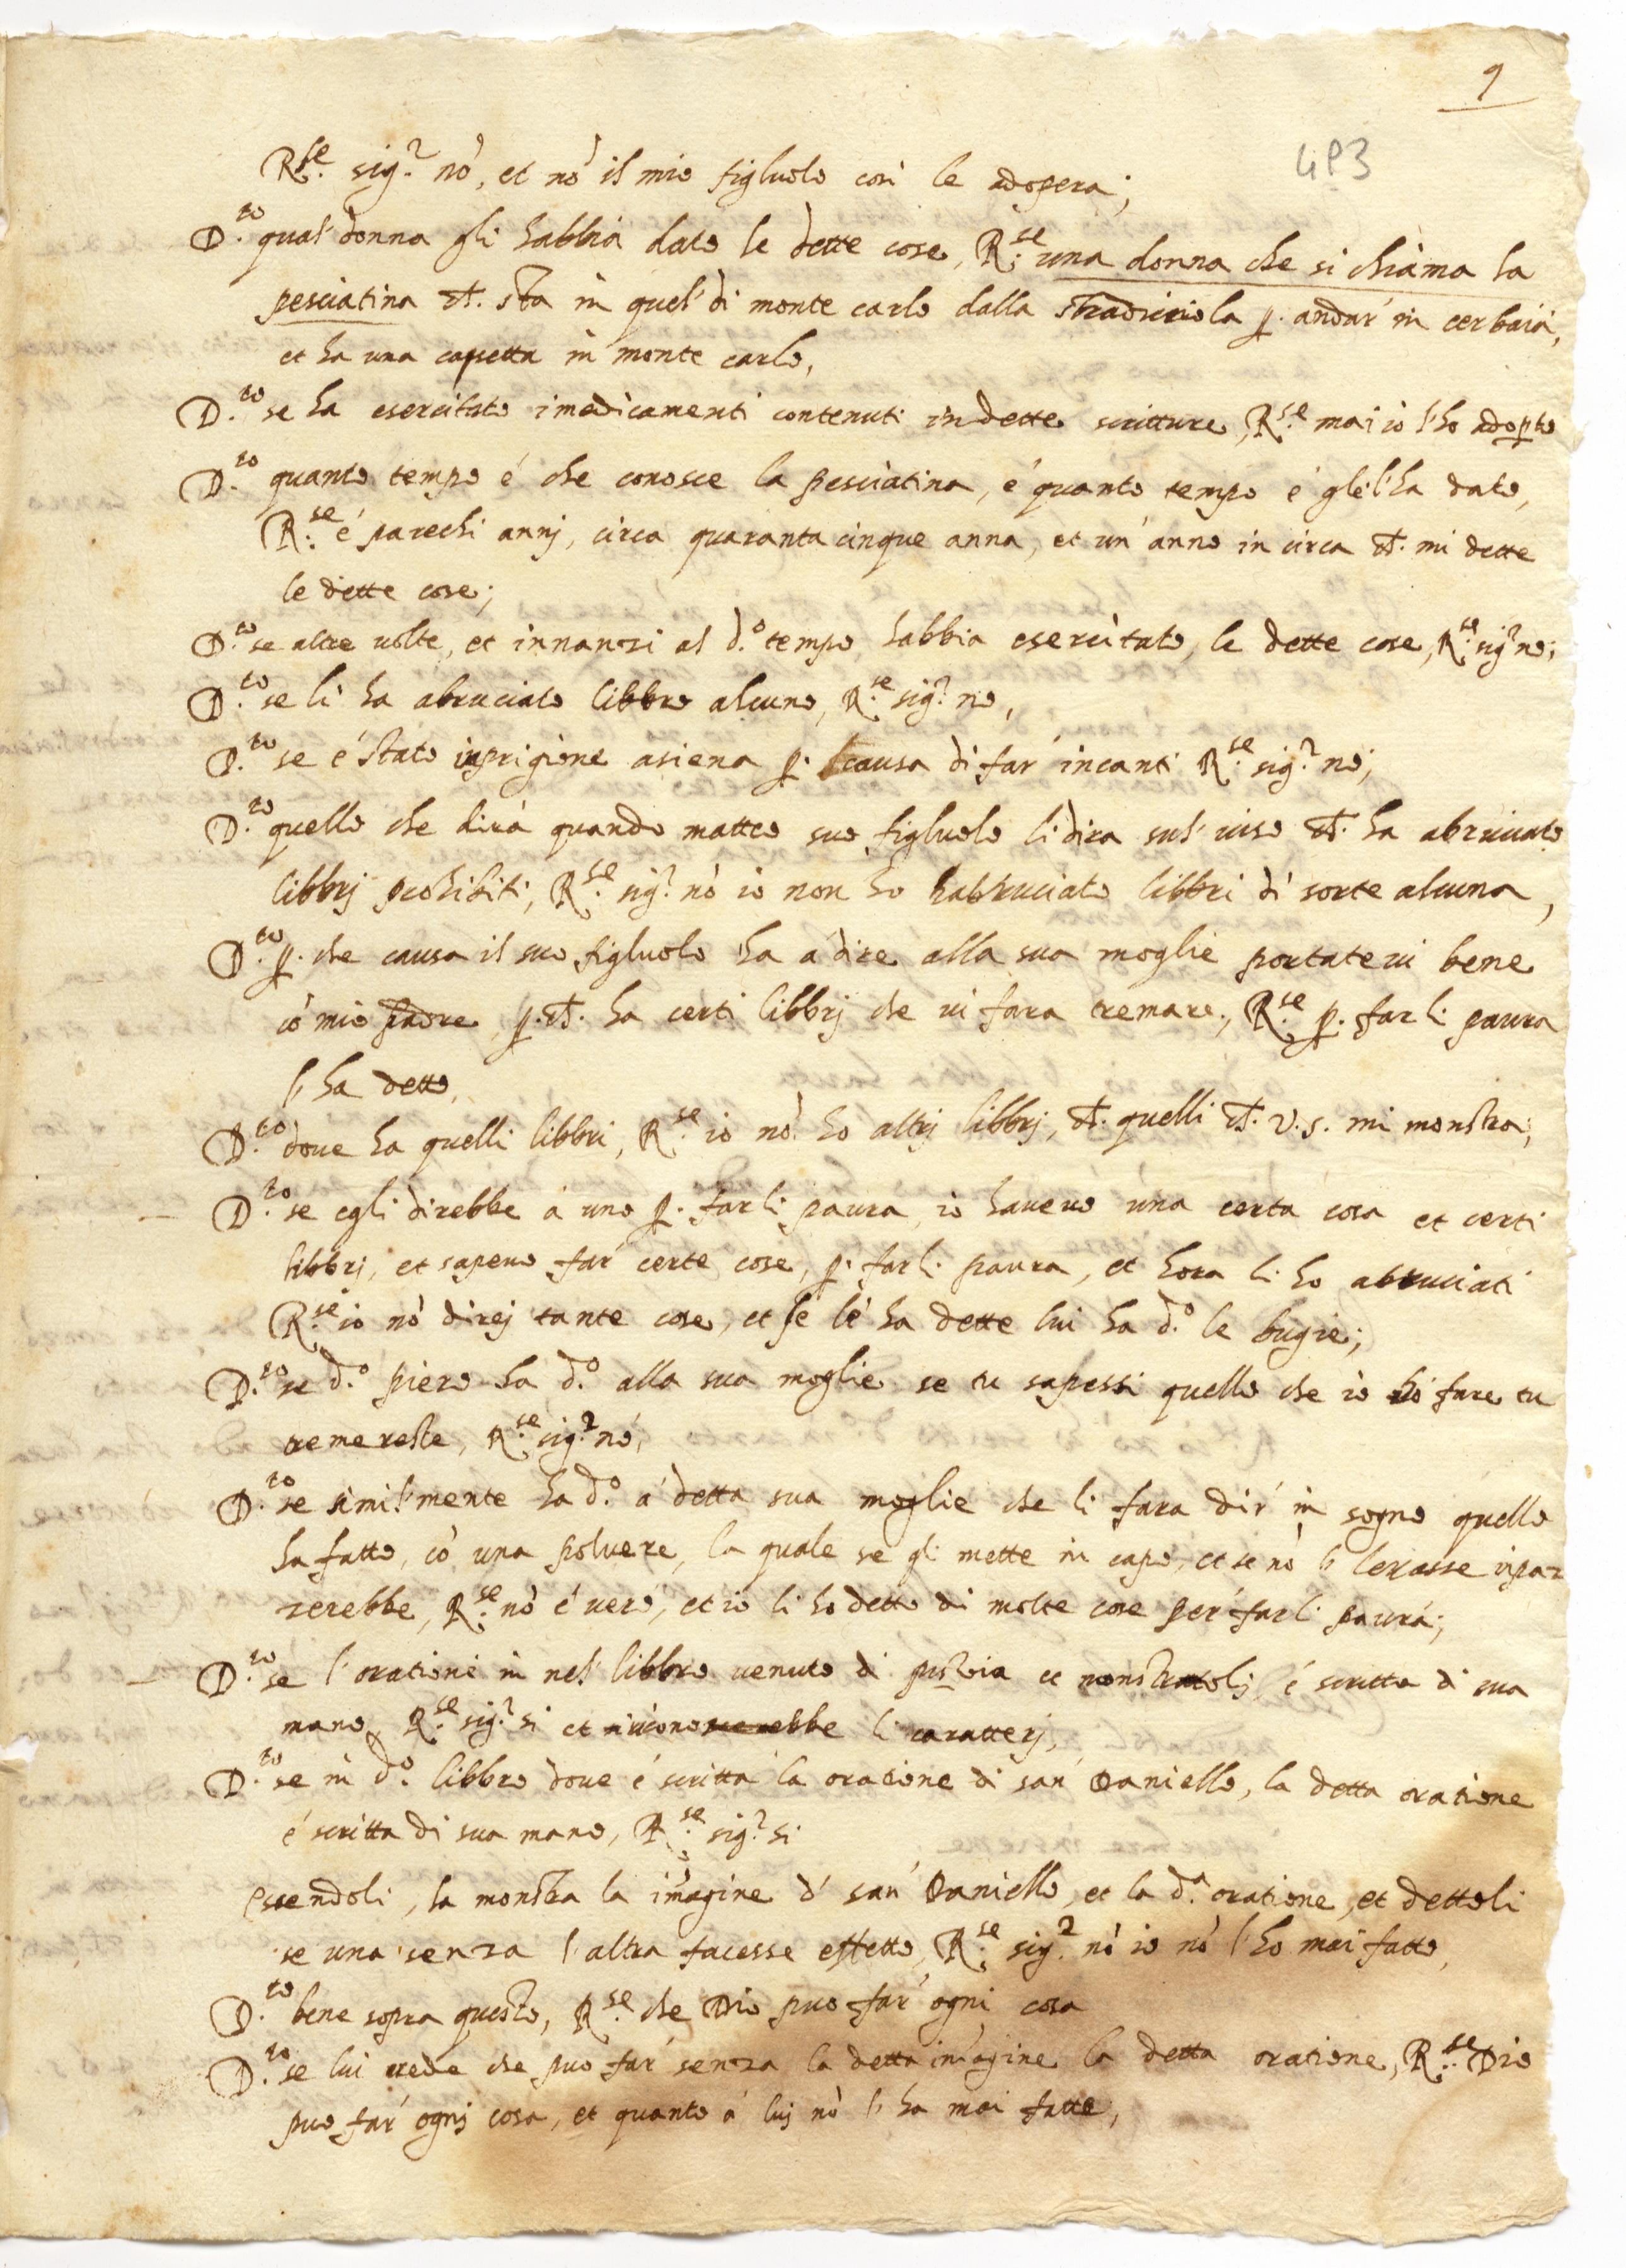 9
493
R.se sig.r nò, et nò il mio figluolo così le adopera;
D.to qual' donna gli habbia dato le dette cose, R.se una donna che si chiama la
pesciatina ch. sta in quel' di monte carlo dalla stradicciola p. andar' in cerbaia,
et ha una casetta in monte carlo,
D.to se ha esercitato i medicamenti contenuti in dette scritture, R.se mai io l'ho adopto
D.to quanto tempo é che conosce la pesciatina, é quanto tempo é gle l'ha dato,
R.se é parechi annj, circa quaranta cinque anna, et un' anno in circa ch. mi dette
le dette cose;
D.to se altre uolte, et innanzi al d.o tempo habbia esercitato, le dette cose, R.se sig.r no;
D.to se li ha abruciato libbro alcuno, R.se sig.r no,
D.to se é stato inprigione asiena p. causa di far' incanti R.se sig.r no;
D.to quello che dirà quando matteo suo figluolo li dira sul' uiso ch. ha abruciato
libbrj prohibiti, R.se sig.r nò io non ho habbruciato libbri di sorte alcuna,
D.to p. che causa il suo figluolo ha á dire alla sua moglie portateui bene
cò mio padre, p. ch. ha certi libbrj che ui fara tremare, R.se p. farli paura
l' ha detto,
D.to doue ha quelli libbri, R.se io nò ho altrj libbrj, ch. quelli ch. V.S. mi monstra;
D.to se egli direbbe á uno p. farli paura, io haueuo una certa cosa et certi
libbrj, et sapeuo far' certe cose, p. farli paura, et hora li ho abbruciati
R.se io nò direj tante cose, et se le ha dette lui ha d.o le bugie;
D.to se d.o piero ha d.o alla sua moglie se tu sapessi quello che io so fare tu
tremereste, R.se sig.r nó,
D.to se simil'mente ha d.o á detta sua moglie che li fara dir' in sogno quello
ha fatto, cò una poluere, la quale se gli mette in capo, et se nò l' leuasse inpaz
zerebbe, R.se nò é uero, et io li ho detto di molte cose per farli paura;
D.to se l'oratione in nel' libbro uenuto di pistoia et monstratoli, é scritta di sua
mano, R.se sig.r si et li caratterj,
D.to se in d.o libbro doue é scritta la oratione di san' Daniello, la detta oratione
é scritta di sua mano, R.se sig.r si
essendoli, la monstra la imagine di san' Daniello, et la d.a oratione, et dettoli
se una senza l'altra facesse effetto, R.se sig.r nò io nò l'ho mai fatto,
D.to bene sopra questo, R.se che Dio puo far' ogni cosa
D.to se lui crede che puo far' senza la detta imagine la detta oratione, R.se Dio
puo far' ognj cosa, et quanto á luj nò l' ha mai fatte,